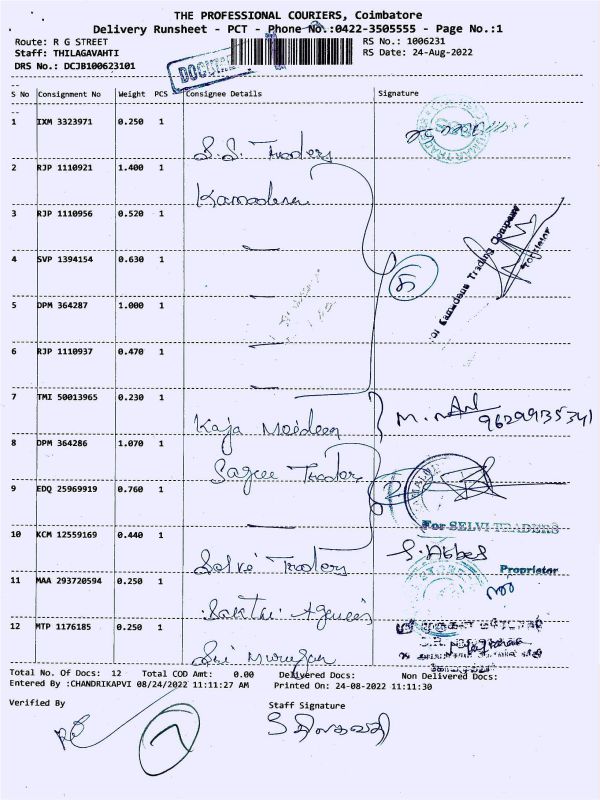 THE PROFESSIONAL COURIERS, Coimbatore
Delivery Runsheet - PCT - Phone No.:0422-3505555 - Page No.:1
Route: R G STREET
RS No.: 1006231
Staff: THILAGAVAHTI
RS Date: 24-Aug-2022
DRS No.: DCJB100623101
S No Consignment No Weight PCS Consignee Details Signature
1 IXM 3323971 0.250 1 S.S. Traders
2 RJP 1110921 1.400 1 Kamadenu
3 RJP 1110956 0.520 1
4 SVP 1394154 0.630 1
5 DPM 364287 1.000 1
6 RJP 1110937 0.470 1
7 TMI 50013965 0.230 1 Kaja Moideen
8 DPM 364286 1.070 1 Traders
9 EDQ 25969919 0.760 1
For SELVI TRADERS
10 KCM 12559169 0.440 1 Selvi Traders S. Abbas
Proprietor
11 MAA 293720594 0.250 1 Sakthi Agencies
12 MTP 1176185 0.250 1 Sri Murugan
Total No. Of Docs: 12 Total COD Amt: 0.00 Delivered Docs: Non Delivered Docs:
Entered By :CHANDRIKAPVI 08/24/2022 11:11:27 AM Printed On: 24-08-2022 11:11:30
Verified By Staff Signature
7